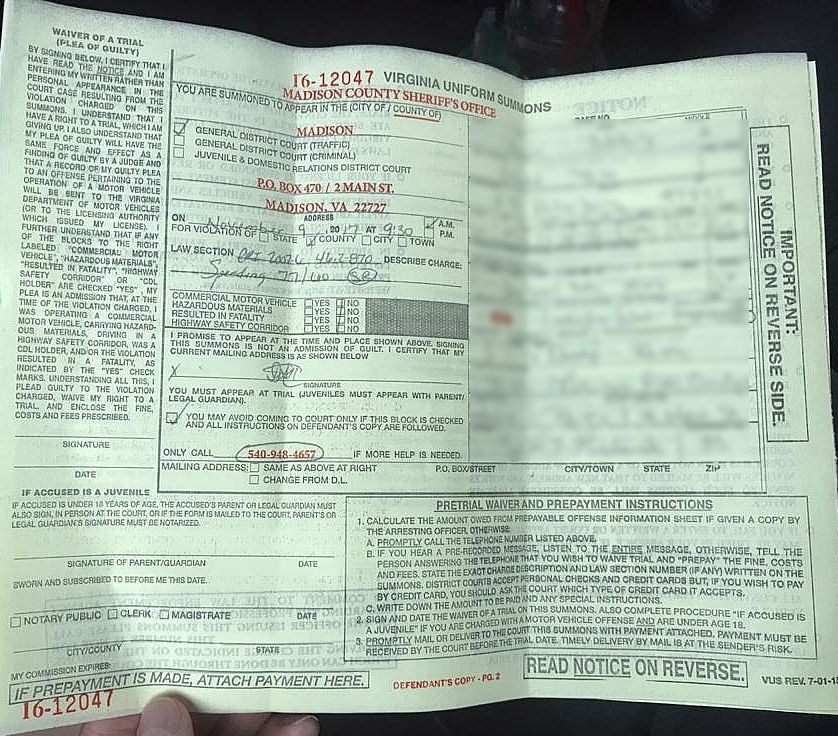 WAIVER OF A TRIAL
(PLEA OF GUILTY)
BY SIGNING BELOW, I CERTIFY THAT I
HAVE READ THE NOTICE AND I AM
ENTERING MY WRITTEN RATHER THAN
PERSONAL APPEARANCE IN THE
COURT CASE RESULTING FROM THE
VIOLATION CHARGED ON THIS
SUMMONS. I UNDERSTAND THAT I
HAVE A RIGHT TO A TRIAL, WHICH I AM
GIVING UP. I ALSO UNDERSTAND THAT
MY PLEA OF GUILTY WILL HAVE THE
SAME FORCE AND EFFECT AS A
FINDING OF GUILTY BY A JUDGE AND
THAT A RECORD OF MY GUILTY PLEA
TO AN OFFENSE PERTAINING TO THE
OPERATION OF A MOTOR VEHICLE
WILL BE SENT TO THE VIRGINIA
DEPARTMENT OF MOTOR VEHICLES
(OR TO THE LICENSING AUTHORITY
WHICH ISSUED MY LICENSE). I
FURTHER UNDERSTAND THAT IF ANY
OF THE BLOCKS TO THE RIGHT
LABELED "COMMERCIAL MOTOR
VEHICLE", "HAZARDOUS MATERIALS",
"RESULTED IN FATALITY", "HIGHWAY
SAFETY CORRIDOR" OR "CDL
HOLDER" ARE CHECKED "YES", MY
PLEA IS AN ADMISSION THAT, AT THE
TIME OF THE VIOLATION CHARGED, I
WAS OPERATING A COMMERCIAL
MOTOR VEHICLE, CARRYING HAZARD-
OUS MATERIALS, DRIVING IN A
HIGHWAY SAFETY CORRIDOR, WAS A
CDL HOLDER, AND/OR THE VIOLATION
RESULTED IN A FATALITY, AS
INDICATED BY THE "YES" CHECK
MARKS. UNDERSTANDING ALL THIS, I
PLEAD GUILTY TO THE VIOLATION
CHARGED, WAIVE MY RIGHT TO A
TRIAL, AND ENCLOSE THE FINE,
COSTS AND FEES PRESCRIBED.
SIGNATURE
DATE
IF ACCUSED IS A JUVENILE
IF ACCUSED IS UNDER 18 YEARS OF AGE, THE ACCUSED'S PARENT OR LEGAL GUARDIAN MUST
ALSO SIGN, IN PERSON AT THE COURT, OR IF THE FORM IS MAILED TO THE COURT, PARENT'S OR
LEGAL GUARDIAN'S SIGNATURE MUST BE NOTARIZED.
SIGNATURE OF PARENT/GUARDIAN DATE
SWORN AND SUBSCRIBED TO BEFORE ME THIS DATE.
NOTARY PUBLIC CLERK MAGISTRATE DATE
CITY/COUNTY STATE
MY COMMISSION EXPIRES:
IF PREPAYMENT IS MADE, ATTACH PAYMENT HERE.
16-12047
16-12047 VIRGINIA UNIFORM SUMMONS
MADISON COUNTY SHERIFF'S OFFICE
YOU ARE SUMMONED TO APPEAR IN THE (CITY OF / COUNTY OF)
MADISON
GENERAL DISTRICT COURT (TRAFFIC)
GENERAL DISTRICT COURT (CRIMINAL)
JUVENILE & DOMESTIC RELATIONS DISTRICT COURT
P.O. BOX 470 / 2 MAIN ST.
MADISON, VA 22727
ADDRESS
ON November 9 , 20 17 AT 9:30 A.M.
P.M.
FOR VIOLATION OF: STATE COUNTY CITY TOWN
LAW SECTION 46.2-870 DESCRIBE CHARGE:
Speeding 77/60
COMMERCIAL MOTOR VEHICLE YES NO
HAZARDOUS MATERIALS YES NO
RESULTED IN FATALITY YES NO
HIGHWAY SAFETY CORRIDOR YES NO
I PROMISE TO APPEAR AT THE TIME AND PLACE SHOWN ABOVE. SIGNING
THIS SUMMONS IS NOT AN ADMISSION OF GUILT. I CERTIFY THAT MY
CURRENT MAILING ADDRESS IS AS SHOWN BELOW
X
SIGNATURE
YOU MUST APPEAR AT TRIAL (JUVENILES MUST APPEAR WITH PARENT/
LEGAL GUARDIAN).
YOU MAY AVOID COMING TO COURT ONLY IF THIS BLOCK IS CHECKED
AND ALL INSTRUCTIONS ON DEFENDANT'S COPY ARE FOLLOWED.
ONLY CALL 540-948-4657 IF MORE HELP IS NEEDED.
MAILING ADDRESS: SAME AS ABOVE AT RIGHT P.O. BOX/STREET CITY/TOWN STATE ZIP
CHANGE FROM D.L.
PRETRIAL WAIVER AND PREPAYMENT INSTRUCTIONS
1. CALCULATE THE AMOUNT OWED FROM PREPAYABLE OFFENSE INFORMATION SHEET IF GIVEN A COPY BY
THE ARRESTING OFFICER, OTHERWISE:
A. PROMPTLY CALL THE TELEPHONE NUMBER LISTED ABOVE.
B. IF YOU HEAR A PRE-RECORDED MESSAGE, LISTEN TO THE ENTIRE MESSAGE, OTHERWISE, TELL THE
PERSON ANSWERING THE TELEPHONE THAT YOU WISH TO WAIVE TRIAL AND "PREPAY" THE FINE, COSTS
AND FEES. STATE THE EXACT CHARGE DESCRIPTION AND LAW SECTION NUMBER (IF ANY) WRITTEN ON THE
SUMMONS. DISTRICT COURTS ACCEPT PERSONAL CHECKS AND CREDIT CARDS BUT, IF YOU WISH TO PAY
BY CREDIT CARD, YOU SHOULD ASK THE COURT WHICH TYPE OF CREDIT CARD IT ACCEPTS.
C. WRITE DOWN THE AMOUNT TO BE PAID AND ANY SPECIAL INSTRUCTIONS.
2. SIGN AND DATE THE WAIVER OF A TRIAL ON THIS SUMMONS. ALSO COMPLETE PROCEDURE "IF ACCUSED IS
A JUVENILE" IF YOU ARE CHARGED WITH A MOTOR VEHICLE OFFENSE AND ARE UNDER AGE 18.
3. PROMPTLY MAIL OR DELIVER TO THE COURT THIS SUMMONS WITH PAYMENT ATTACHED. PAYMENT MUST BE
RECEIVED BY THE COURT BEFORE THE TRIAL DATE. TIMELY DELIVERY BY MAIL IS AT THE SENDER'S RISK.
DEFENDANT'S COPY - PG. 2
READ NOTICE ON REVERSE.
VUS REV. 7-01-15
IMPORTANT:
READ NOTICE ON REVERSE SIDE.